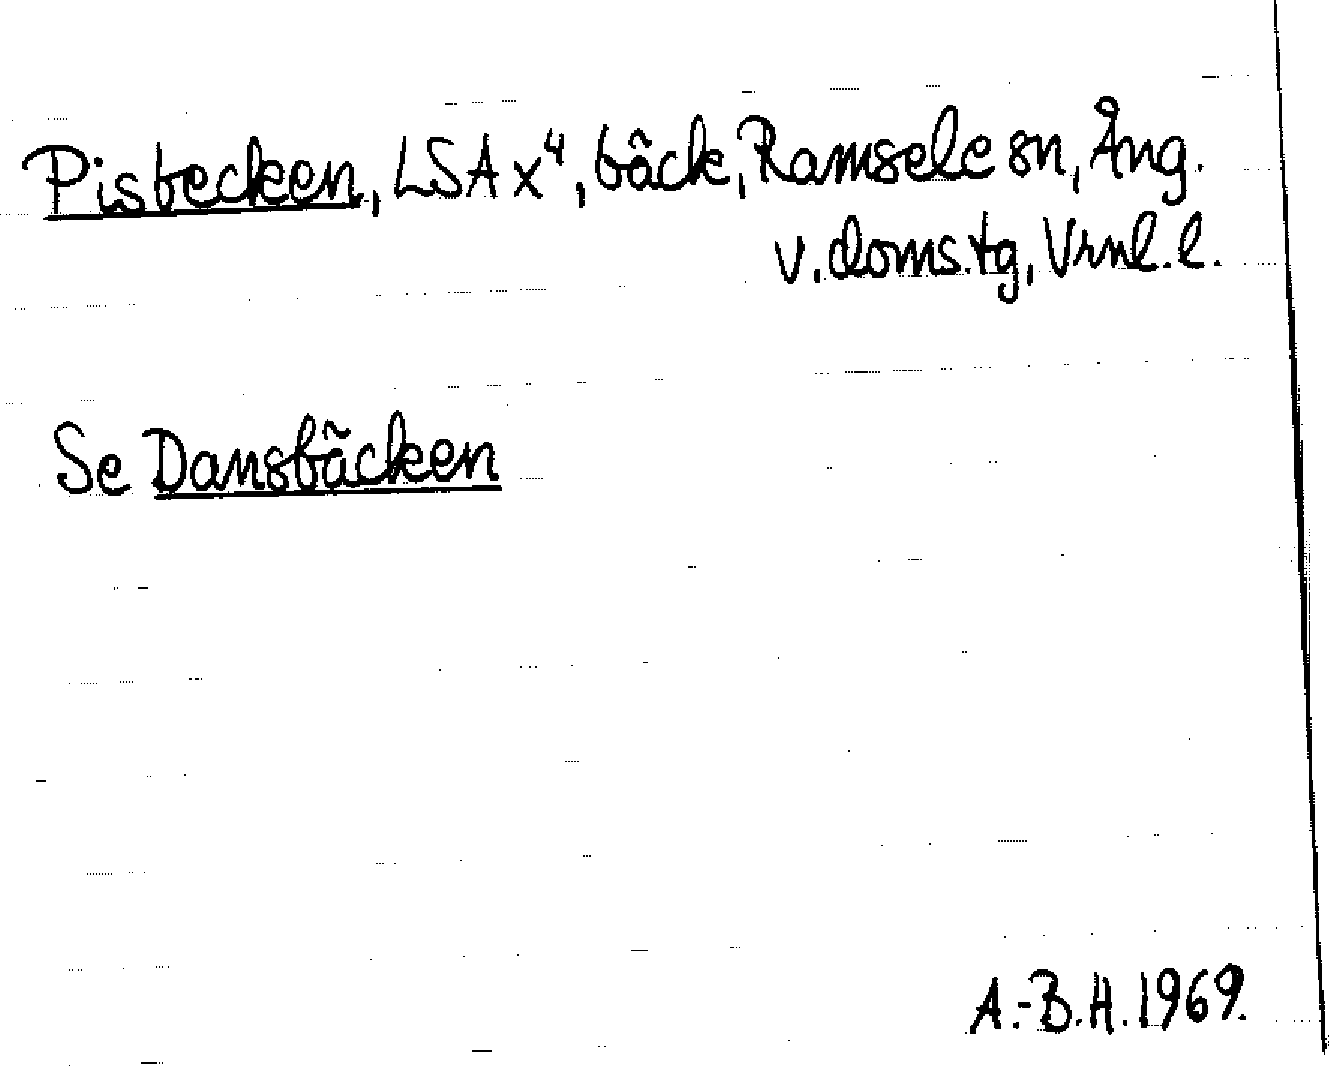 Pisbecken, LSA x⁴, bäck, Ramsele sn, Ång.
v. doms.tg, Vrnl. l.
Se Dansbäcken
A.-B.H. 1969.